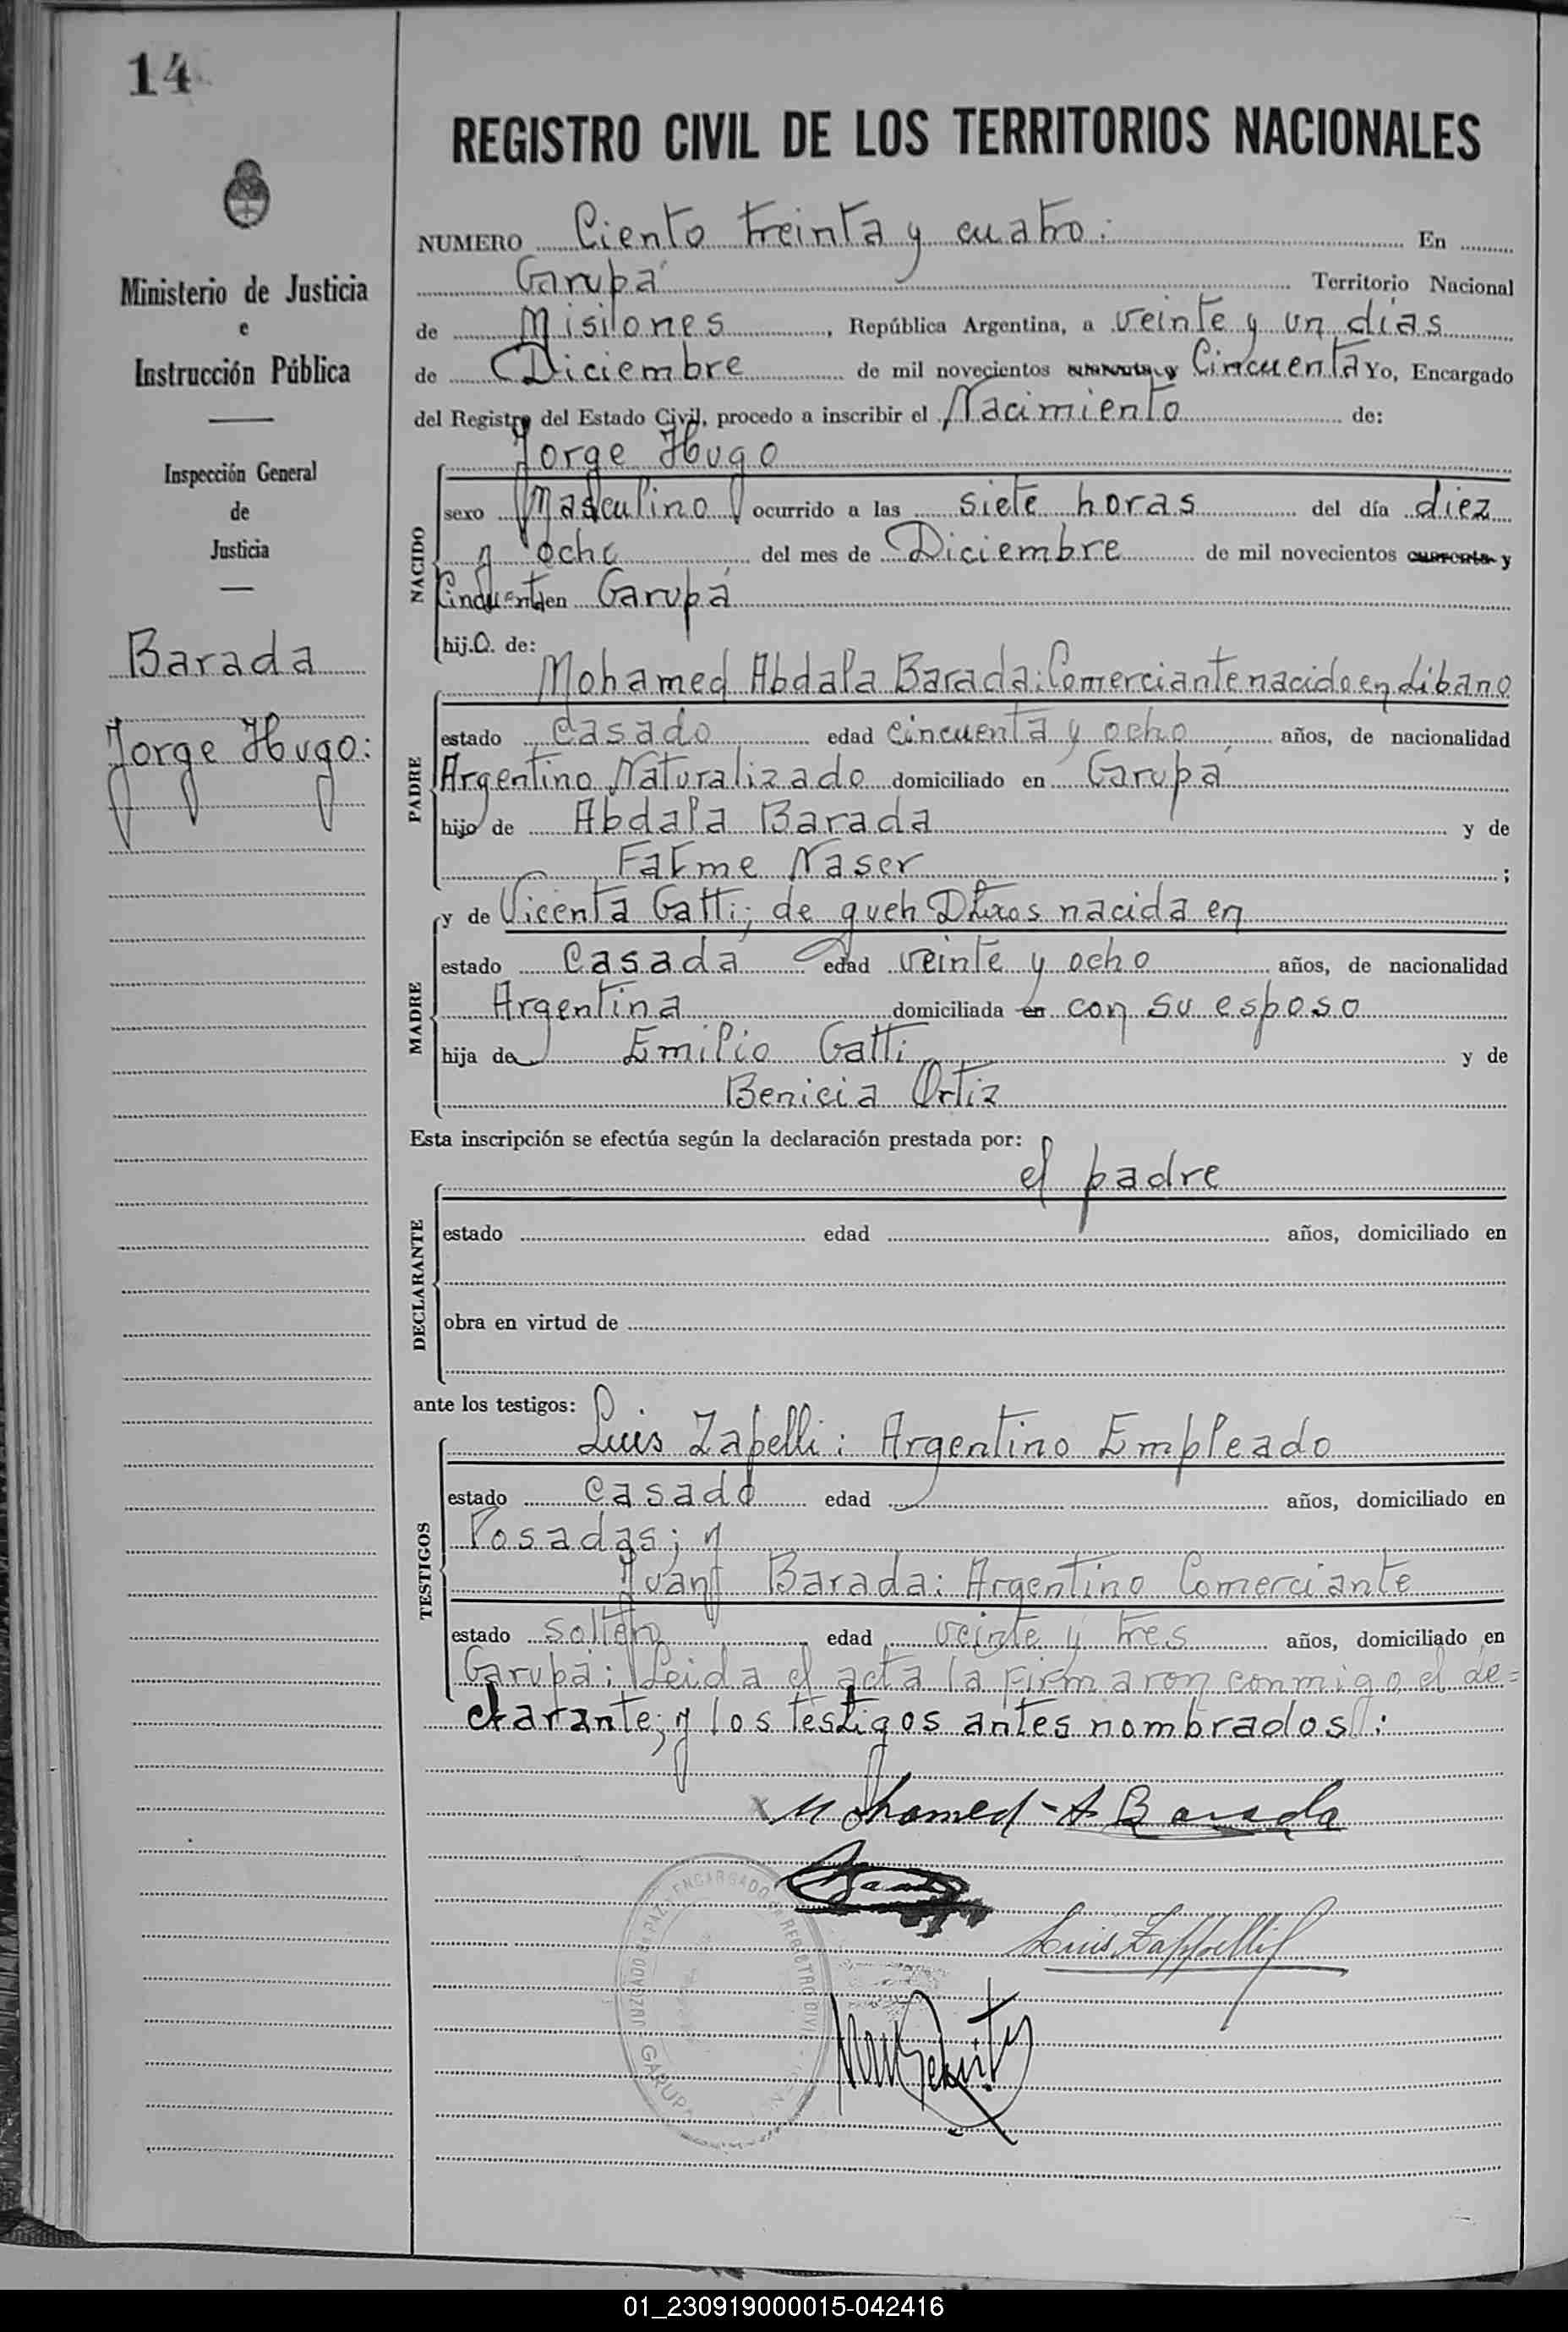 14
REGISTRO CIVIL DE LOS TERRITORIOS NACIONALES
Ministerio de Justicia
e
Instrucción Pública
Inspección General
de
Justicia
Barada
Jorge Hugo:
NUMERO Ciento treinta y cuatro: En
Garupá Territorio Nacional
de Misiones, República Argentina, a veinte y un días
de Diciembre de mil novecientos cuarenta y Cincuenta Yo, Encargado
del Registro del Estado Civil, procedo a inscribir el Nacimiento de:
Jorge Hugo
NACIDO
sexo Masculino ocurrido a las siete horas del día diez
y ocho del mes de Diciembre de mil novecientos cuarenta y
Cincuenta en Garupá
hij.o. de:
Mohamed Abdala Barada: Comerciante nacido en Libano
PADRE
estado Casado edad cincuenta y ocho años, de nacionalidad
Argentino Naturalizado domiciliado en Garupá
hijo de Abdala Barada y de
Fatme Naser ;
MADRE
y de Vicenta Gatti; de queh Dtixos nacida en
estado Casada edad veinte y ocho años, de nacionalidad
Argentina domiciliada en con su esposo
hija de Emilio Gatti y de
Benicia Ortiz
Esta inscripción se efectúa según la declaración prestada por:
el padre
DECLARANTE
estado edad años, domiciliado en
obra en virtud de
ante los testigos:
Luis Zapelli: Argentino Empleado
TESTIGOS
estado Casado edad años, domiciliado en
Posadas; y
Juan Barada: Argentino Comerciante
estado soltero edad veinte y tres años, domiciliado en
Garupá: Leida el acta la firmaron conmigo el de=
clarante; y los testigos antes nombrados:
x Mohamed - A Barada
Luis Zappelli
JUZGADO DE PAZ ENCARGADO REGISTRO CIVIL
GARUPA
01_230919000015-042416